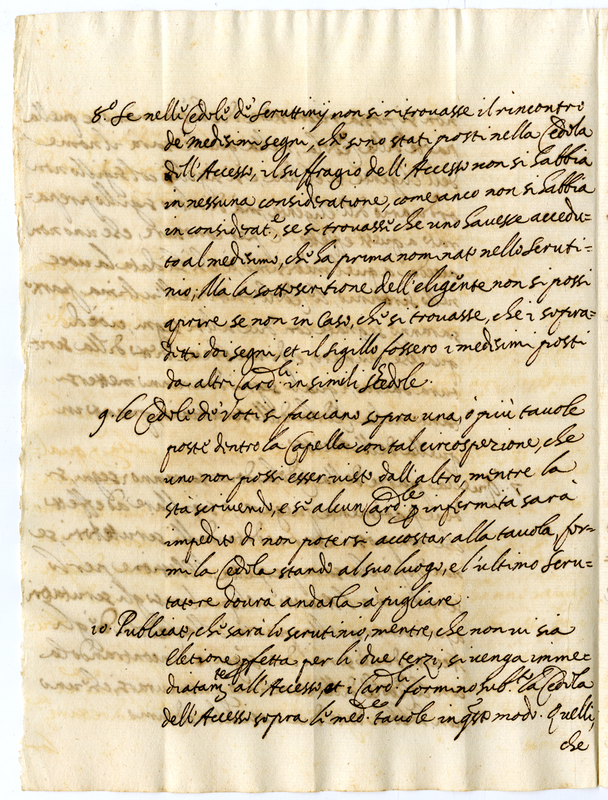 8.º Se nelle Cedole de Scruttinij non si ritrovasse il rincontro
de medesimi segni, che sono stati posti nella Cedola
dell'Accesso, il suffragio dell'Accesso non si habbia
in nessuna consideratione, come anco non si habbia
in considerat.e, se si trovasse che uno havesse accedu=
to al medesimo, che ha prima nominato nello Scruti=
nio; Mà la sottoscritione dell'eligente non si possi
aprire se non in Caso, che si trovasse, che i sopra=
ditti doi segni, et il sigillo fossero i medesimi posti
da altri Card.li in simili Schedole.
9. le Cedole de Voti si facciano sopra una, ò più tavole
poste dentro la Capella con tal circospezione, che
uno non possi esser visto dall'altro, mentre la
stà scrivendo, e se alcun Card.le p infermità sarà
impedito di non potersi accostar alla tavola, for=
mi la Cedola stando al suo luogo, e l'ultimo Scru=
tatore dovrà andarla à pigliare.
10. Publicato, che sarà lo scrutinio, mentre, che non vi sia
Eletione pfetta per li due terzi, si venga imme=
diatam.te all'Accesso, et i Card.li formino sub.to la Cedola
dell'Accesso sopra le med.e tavole in qsto modo. Quelli,
che